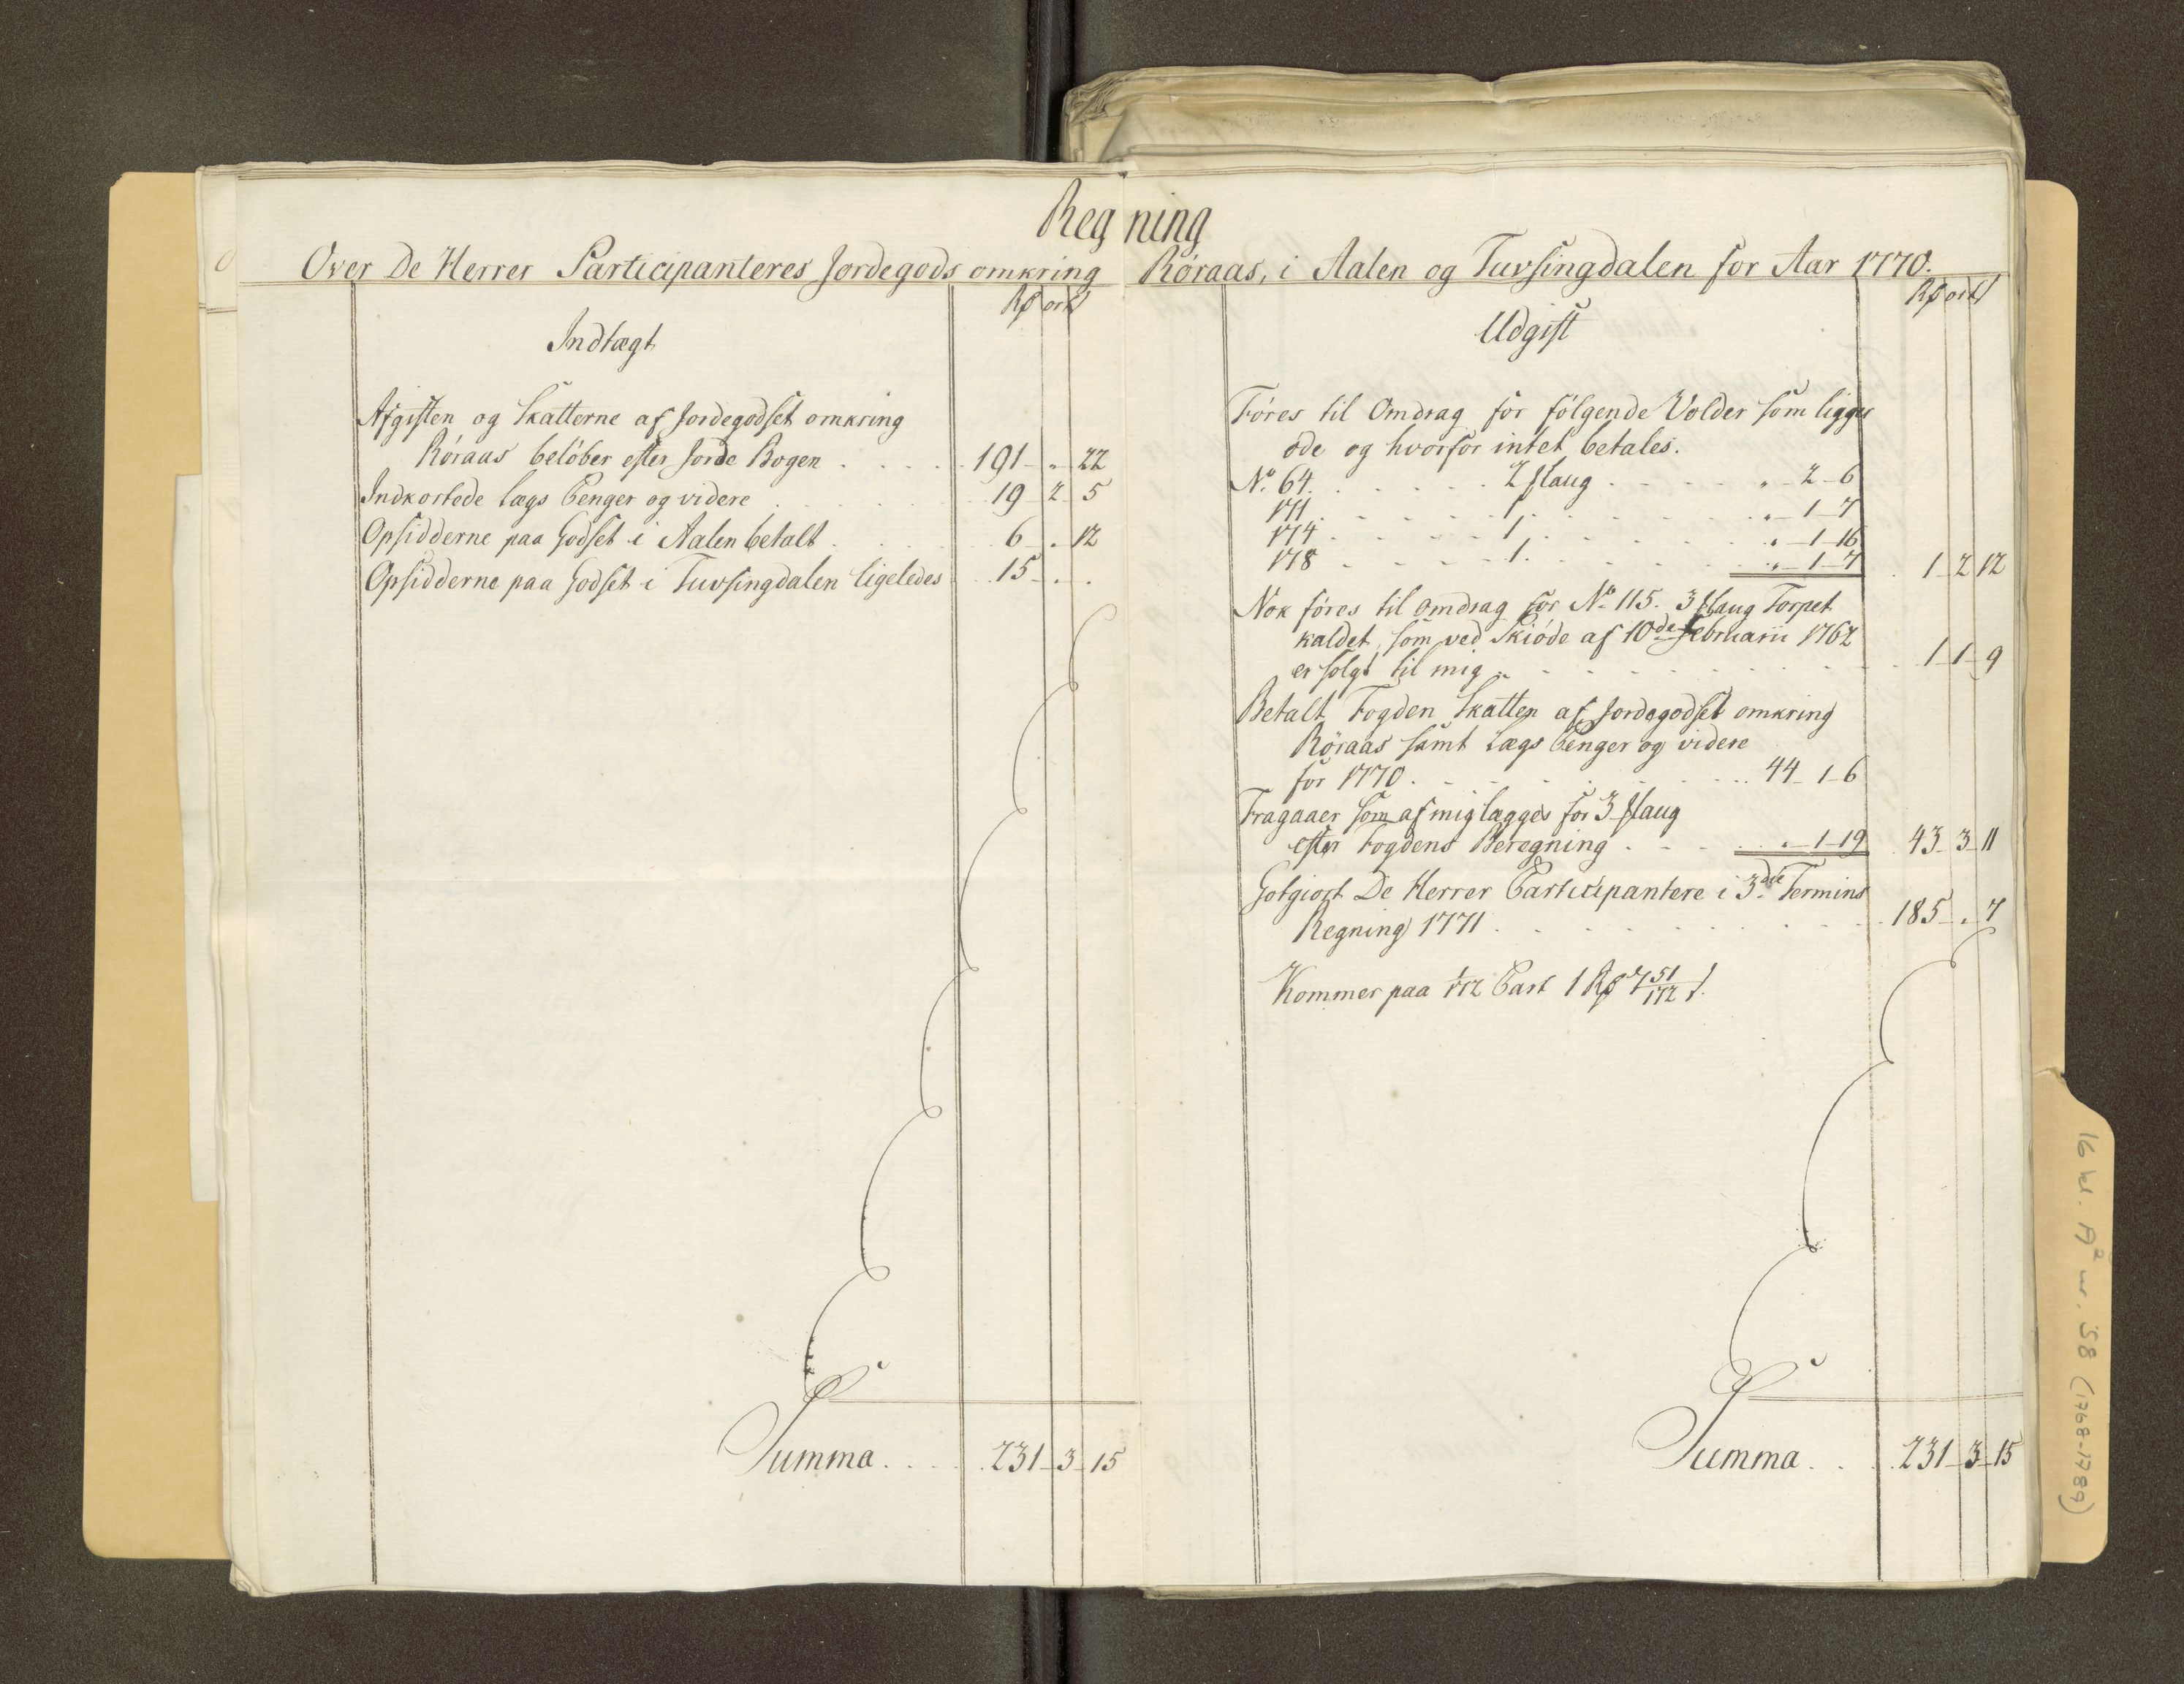 Regning
Over De Herrer Participanteres Jordegods omkring Röraas, i Aalen og Tuvsingdalen for Aar 1770.
Rd ort s
Indtægt
Afgiften og Skatterne af Jordegodset omkring
Röraas belöber efter Jorde Bogen . . . . . 191 - „ - 22
Indkortede Lægs Penger og videre . . . . . 19 - 2 - 5
Opsidderne paa Godset i Aalen betalt . . . . 6 - „ - 12
Opsidderne paa Godset i Tuvsingdalen ligeledes . . 15 - „ - „
Summa . . . . 231 - 3 - 15
Rd ort s
Udgift
Föres til Omdrag for fölgende Volder som ligger
öde og hvorfor intet betales.
No. 64. . . . . . 2 slaug . . . . . „ - 2 - 6
171 . . . . . 1 . . . . . „ - 1 - 7
174 . . . . . 1 . . . . . „ - 1 - 16
178 . . . . . 1 . . . . . „ - 1 - 7 . 1 - 2 - 12
Nok föres til omdrag for No. 115. 3 slaug Torpet
kaldet, som ved Skiöde af 10de Februarii 1762
er solgt til mig . . . . . . . . 1 - 1 - 9
Betalt Fogden Skatten af Jordegodset omkring
Röraas samt Lægs Penger og videre
for 1770 . . . . . . . . 44 - 1 - 6
Fragaaer som af mig lægges for 3 slaug
efter Fogdens Beregning . . . . „ - 1 - 19 . 43 - 3 - 11
Gotgiort De Herrer Participantere i 3die Termins
Regning 1771 . . . . . . . . . 185 - „ - 7
Kommer paa 1/172 Part 1 Rd 7 51/172 s.
Summa . . . . 231 - 3 - 15
16 kl. A² nr. 58 (1768-1789)